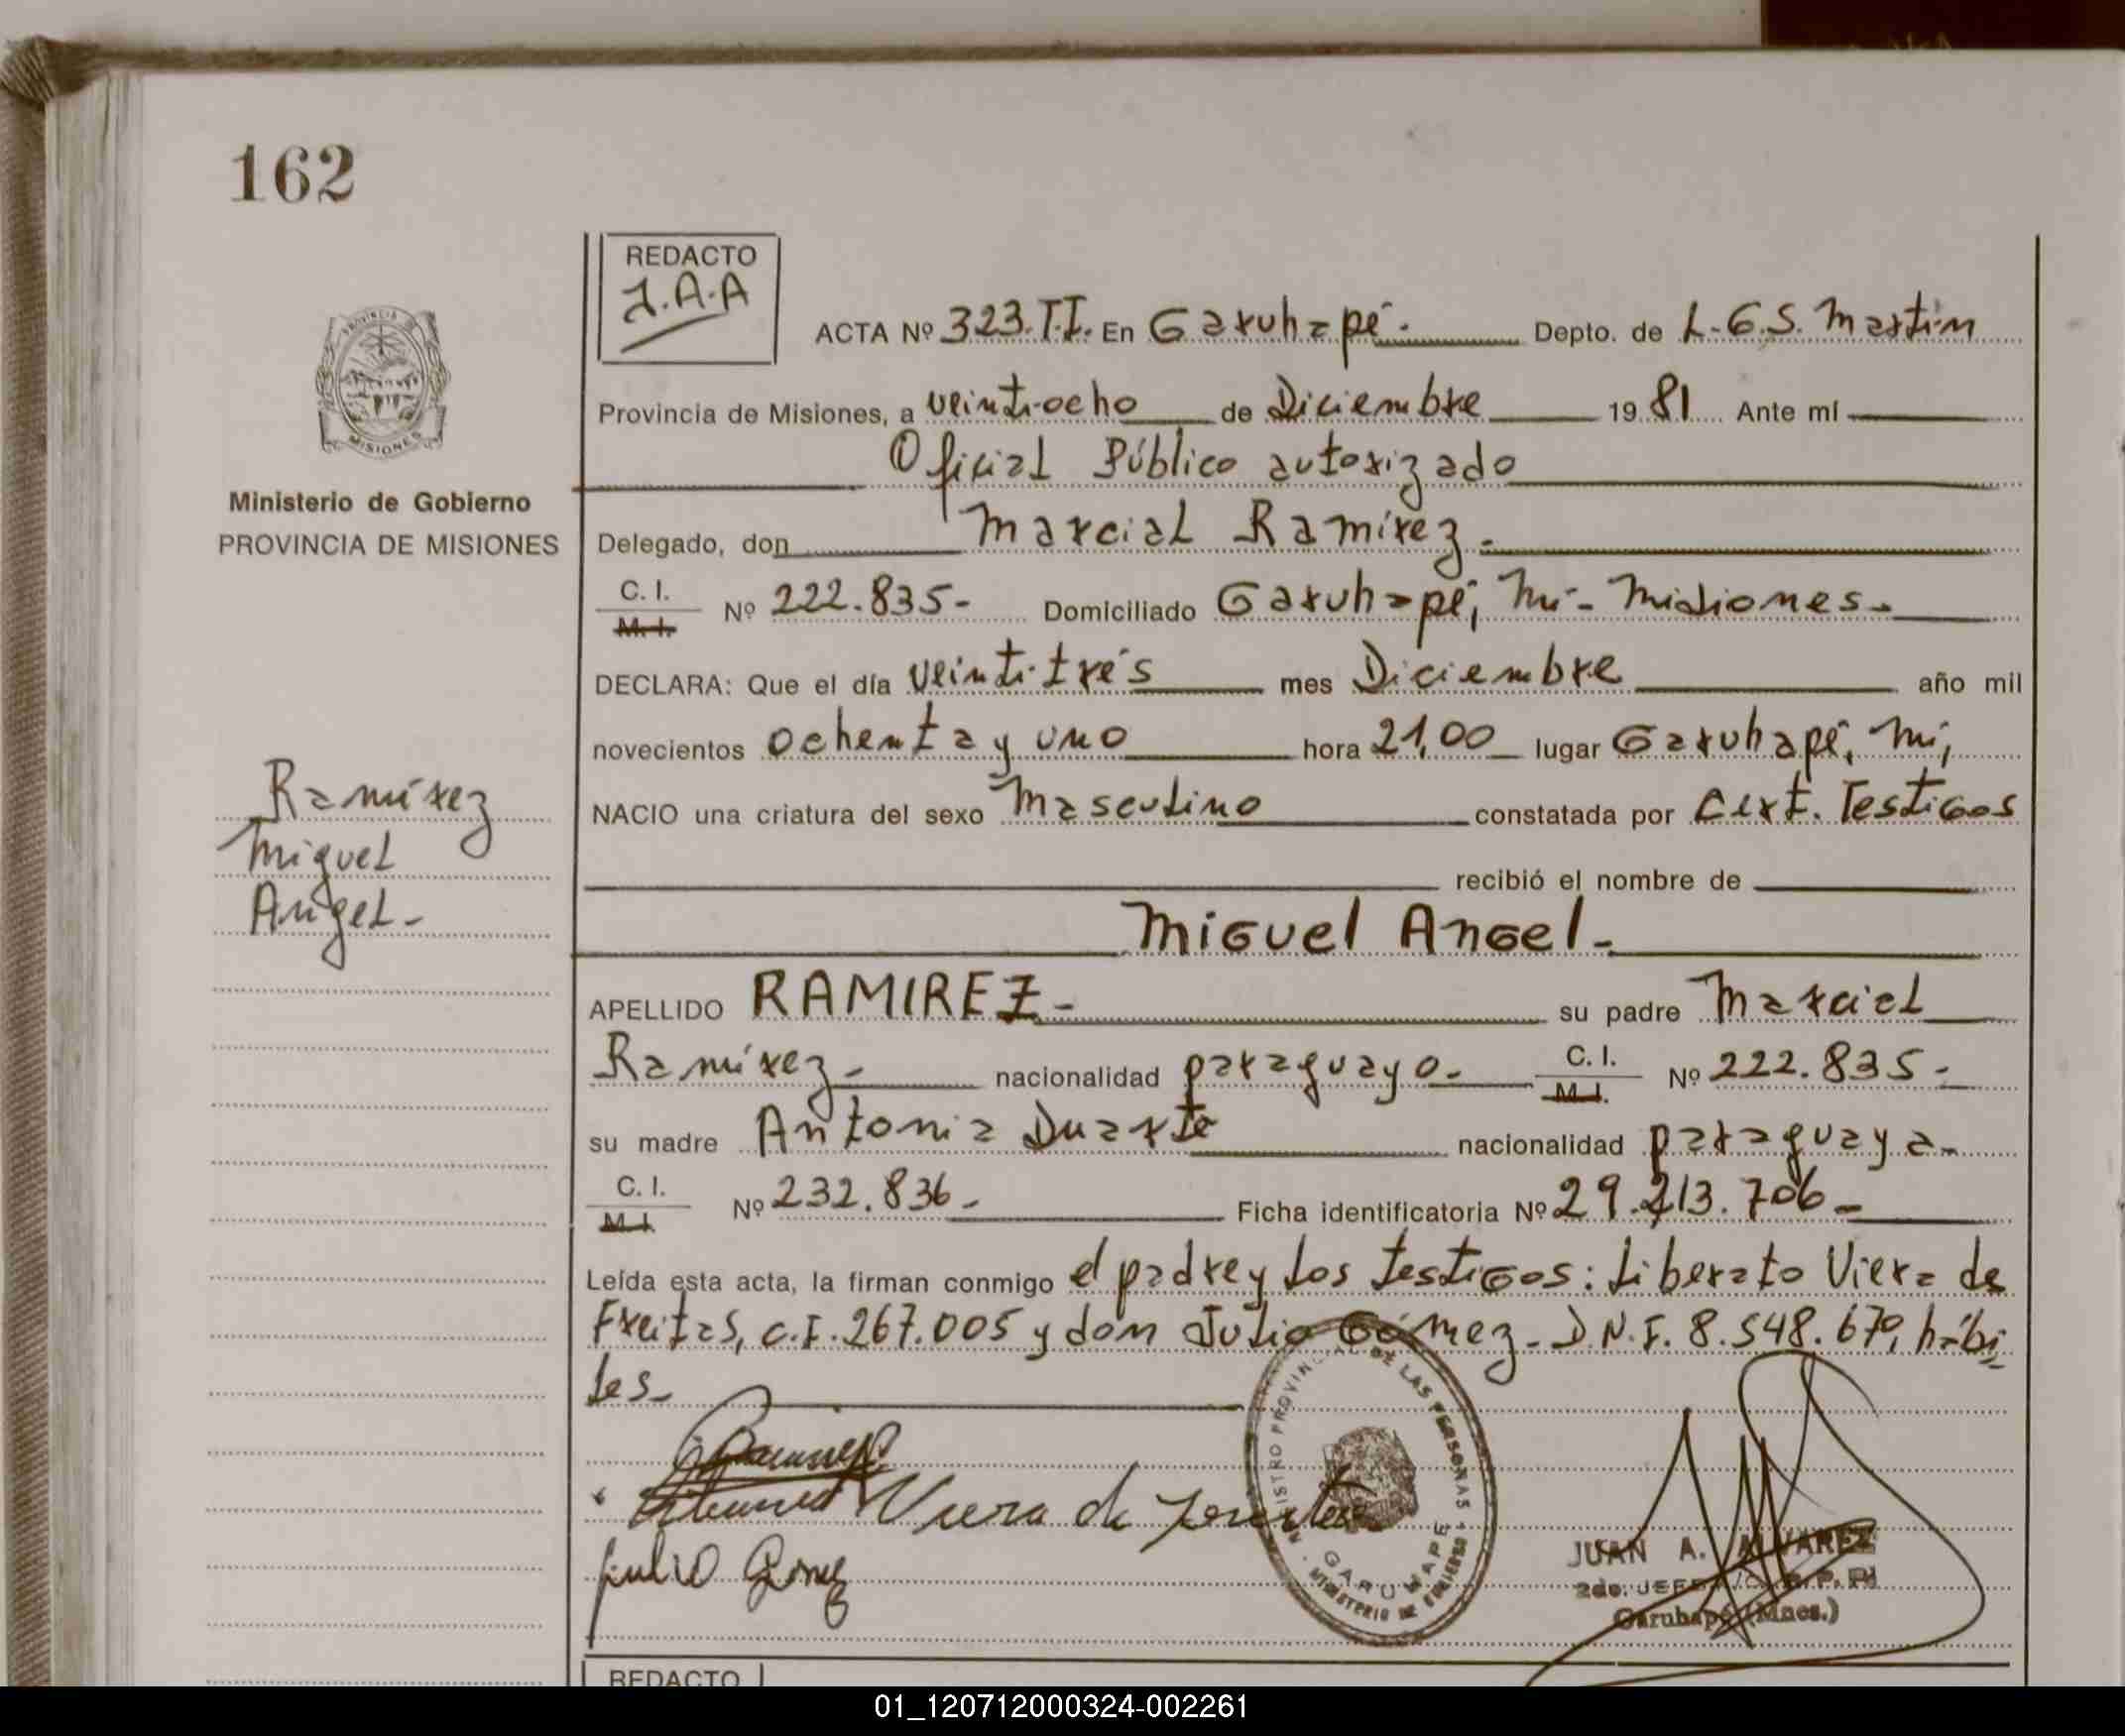 162
REDACTO
J.A.A
ACTA Nº 323.T.I. En Garuhapé.- Depto. de L.G.S. Martin
Provincia de Misiones, a veintiocho de Diciembre 19 81 Ante mí
Oficial Público autorizado
Ministerio de Gobierno
PROVINCIA DE MISIONES
Delegado, don Marcial Ramírez.-
C. I.
M. I. Nº 222.835- Domiciliado Garuhapé, Mi- Misiones.-
DECLARA: Que el día veintitrés mes Diciembre año mil
novecientos ochenta y uno hora 21,00 lugar Garuhapé, Mi,
NACIO una criatura del sexo Masculino constatada por Cert. Testigos
recibió el nombre de
Miguel Angel.-
Ramírez
Miguel
Angel-
APELLIDO RAMIREZ- su padre Marcial
Ramírez.- nacionalidad paraguayo.- C. I.
M. I. Nº 222.835-
su madre Antonia Duarte nacionalidad paraguaya.-
C. I.
M. I. Nº 232.836- Ficha identificatoria Nº 29.213.706-
Leída esta acta, la firman conmigo el padre y los testigos: Liberato Viera de
Freitas, C.I. 267.005 y don Julio Gómez- D.N.I. 8.548.679, hábi
les-
Viera de
Julio Gomez
MISIONES
REGISTRO PROVINCIAL DE LAS PERSONAS
GARUHAPE
MINISTERIO DE GOBIERNO
JUAN A. ALVAREZ
2do. JEFE
Garuhapé (Mnes.)
REDACTO
01_120712000324-002261